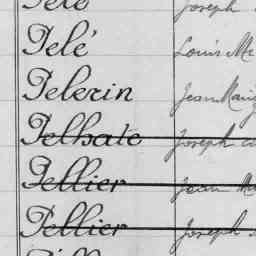 Pelé Joseph
Pelé Louis M
Pelerin Jean Marie
Pelhate Joseph
Pellier Jean M
Pellier Joseph